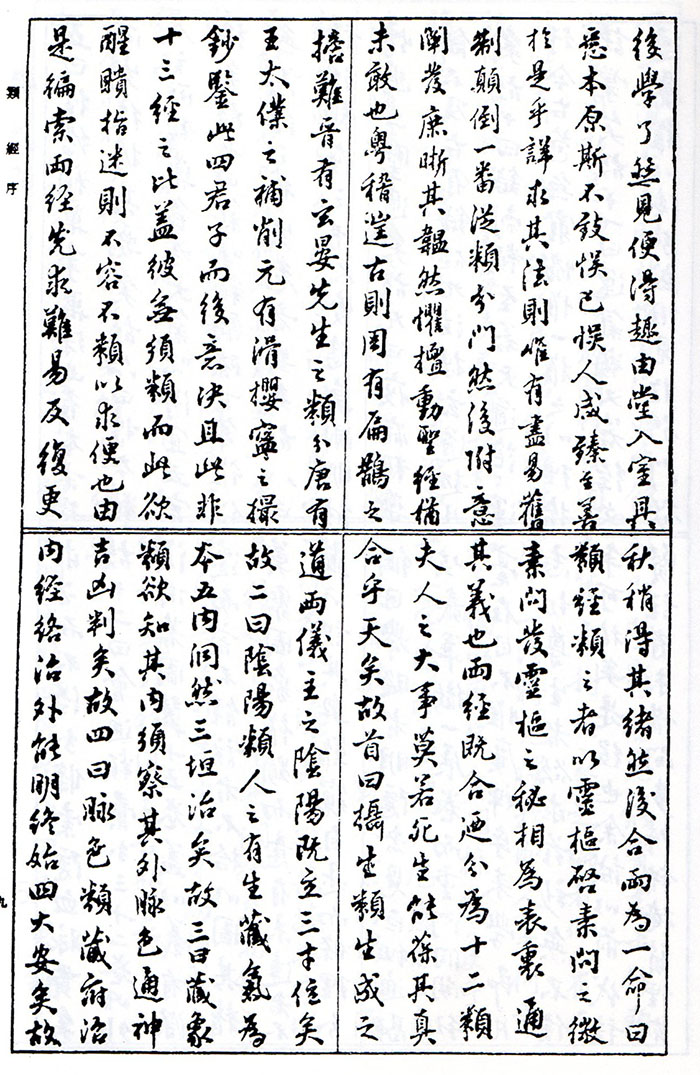 後學了然見便得趣由堂入室具
悉本原斯不致悞己悞人咸臻至善
於是乎詳求其法則唯有盡易舊
制顛倒一番從類分門然後附意
闡發庶晰其韞然懼擅動聖經猶
未敢也粵稽遑古則周有扁鵲之
摘難晉有玄晏先生之類分唐有
王太僕之補削元有滑攖寧之撮
鈔鑒此四君子而後意決且此非
十三經之比蓋彼無須類而此欲
醒瞶指迷則不容不類以求便也由
是徧索兩經先求難易反復更
秋稍得其緒然後合兩為一命曰
類經類之者以靈樞啓素問之微
素問發靈樞之秘相為表裏通
其義也兩經既合迺分為十二類
夫人之大事莫若死生能葆其真
合乎天矣故首曰攝生類生成之
道兩儀主之陰陽既立三才位矣
故二曰陰陽類人之有生藏氣為
本五內洞然三垣治矣故三曰藏象
類欲知其內須察其外脉色通神
吉凶判矣故四曰脉色類藏府治
內經絡治外能明終始四大安矣故
類經序
九